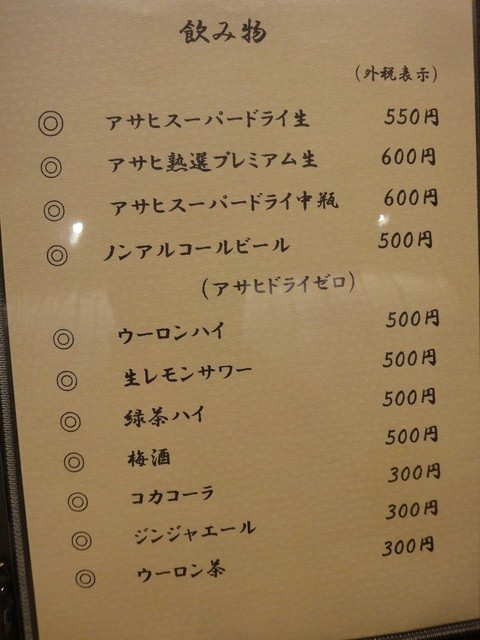 飲み物
(外税表示)
◎ アサヒスーパードライ生 550円
◎ アサヒ熟選プレミアム生 600円
◎ アサヒスーパードライ中瓶 600円
◎ ノンアルコールビール 500円
(アサヒドライゼロ)
◎ ウーロンハイ 500円
◎ 生レモンサワー 500円
◎ 緑茶ハイ 500円
◎ 梅酒 500円
◎ コカコーラ 300円
◎ ジンジャエール 300円
◎ ウーロン茶 300円